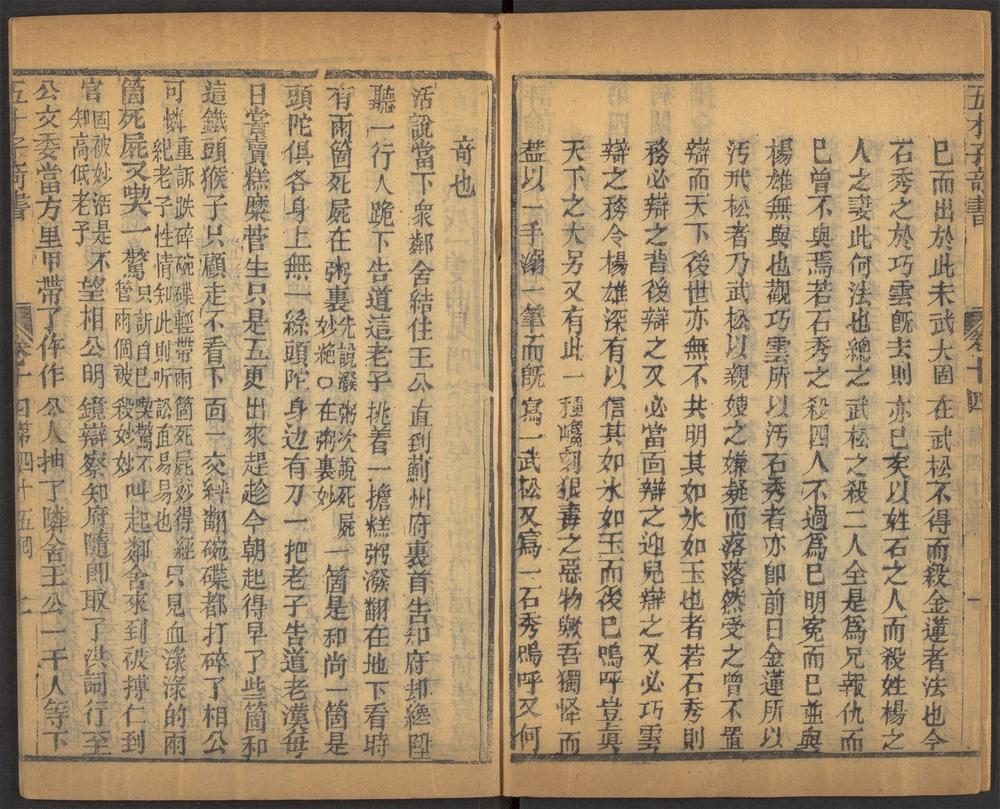 五才子奇書
卷十四
一
已而出於此未武大固在武松不得而殺金蓮者法也今
石秀之於巧雲既去則亦已矣以姓石之人而殺姓楊之
人之妻此何法也總之武松之殺二人全是爲兄報仇而
巳曾不與焉若石秀之殺四人不過爲巳明寃而巳並與
楊雄無與也觀巧雲所以汚石秀者亦卽前日金蓮所以
汚武松者乃武松以親嫂之嫌疑而落落然受之曾不置
辯而天下後世亦無不共明其如氷如玉也者若石秀則
務必辯之背後辯之又必當面辯之迎兒辯之又必巧雲
辯之務令楊雄深有以信其如氷如玉而後巳嗚呼豈眞
天下之大另又有此一種巉刻狠毒之惡物歟吾獨怪而
葢以一手搦一筆而旣寫一武松又寫一石秀嗚呼又何
奇也
活說當下衆鄰舍結住王公直到薊州府裏首告知府却纔陞
聽一行人跪下告道這老子挑着一擔糕粥潑翻在地下看時
有兩箇死屍在粥裏先說潑粥次說死屍妙絶○在粥裏妙一箇是和尚一箇是
頭陀俱各身上無一絲頭陀身边有刀一把老子告道老漢每
日嘗賣糕糜營生只是五更出來趕趁今朝起得早了些箇和
這鐵頭猴子只顧走不看下面一交絆翻碗碟都打碎了相公
可憐重訴跌碎碗碟輕帶兩箇死屍妙得經紀老子性情知此則听訟直易易也只見血淥淥的兩
箇死屍又喫一驚只訴自巳喫驚不管兩個被殺妙妙叫起鄰舍來到被摶仁到
官因被妙活是不知高低老予望相公明鏡辯察知府隨卽取了洪詞行至
公文委當方里甲帶了仵作公人抽了隣舍王公一干人等下
五才子奇書
卷十四第四十五囘
七